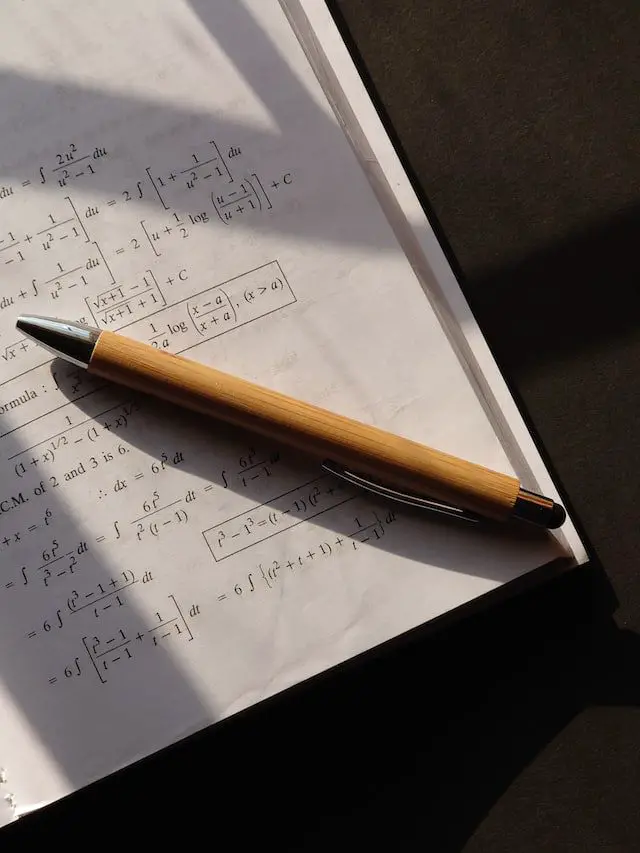 du = ∫ 2u²/(u² − 1) du = 2 ∫ [1 + 1/(u² − 1)] du
−1 + 1/(u² − 1)] du = 2 [u + 1/2 log ((u − 1)/(u + 1))] + C
du + ∫ 1/(u² − 1) du]
[(√x+1 − 1)/(√x+1 + 1)] + C
√x
1/2a log ((x − a)/(x + a)), (x > a)
ormula : ∫
1/((1 + x)^1/2 − (1 + x)^1/3)
C.M. of 2 and 3 is 6.
+ x = t⁶ ∴ dx = 6t⁵ dt
= ∫ 6t⁵/(t³ − t²) dt = ∫ 6t⁵/(t² (t − 1)) dt = ∫ 6t³/(t − 1) dt
= 6 ∫ (t³ − 1 + 1)/(t − 1) dt
t³ − 1³ = (t − 1) (t² +
= 6 ∫ [(t³ − 1)/(t − 1) + 1/(t − 1)] dt = 6 ∫ {(t² + t + 1) + 1/(t − 1)} dt